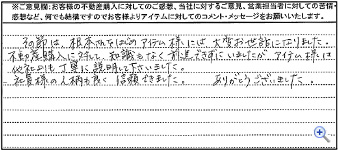 ※ご意見欄:お客様の不動産購入に対してのご感想、当社に対するご意見、営業担当者に対しての苦情・
感想など、何でも結構ですのでお客様よりアイテムに対してのコメント・メッセージをお願いいたします。
アイテム様には 大変お世話になりました。
不動産購入に対して、知識もなく アイテム様は
他社よりも丁寧に説明して下さいました。
社員様の人柄も良く 信頼できました。 ありがとうございました。